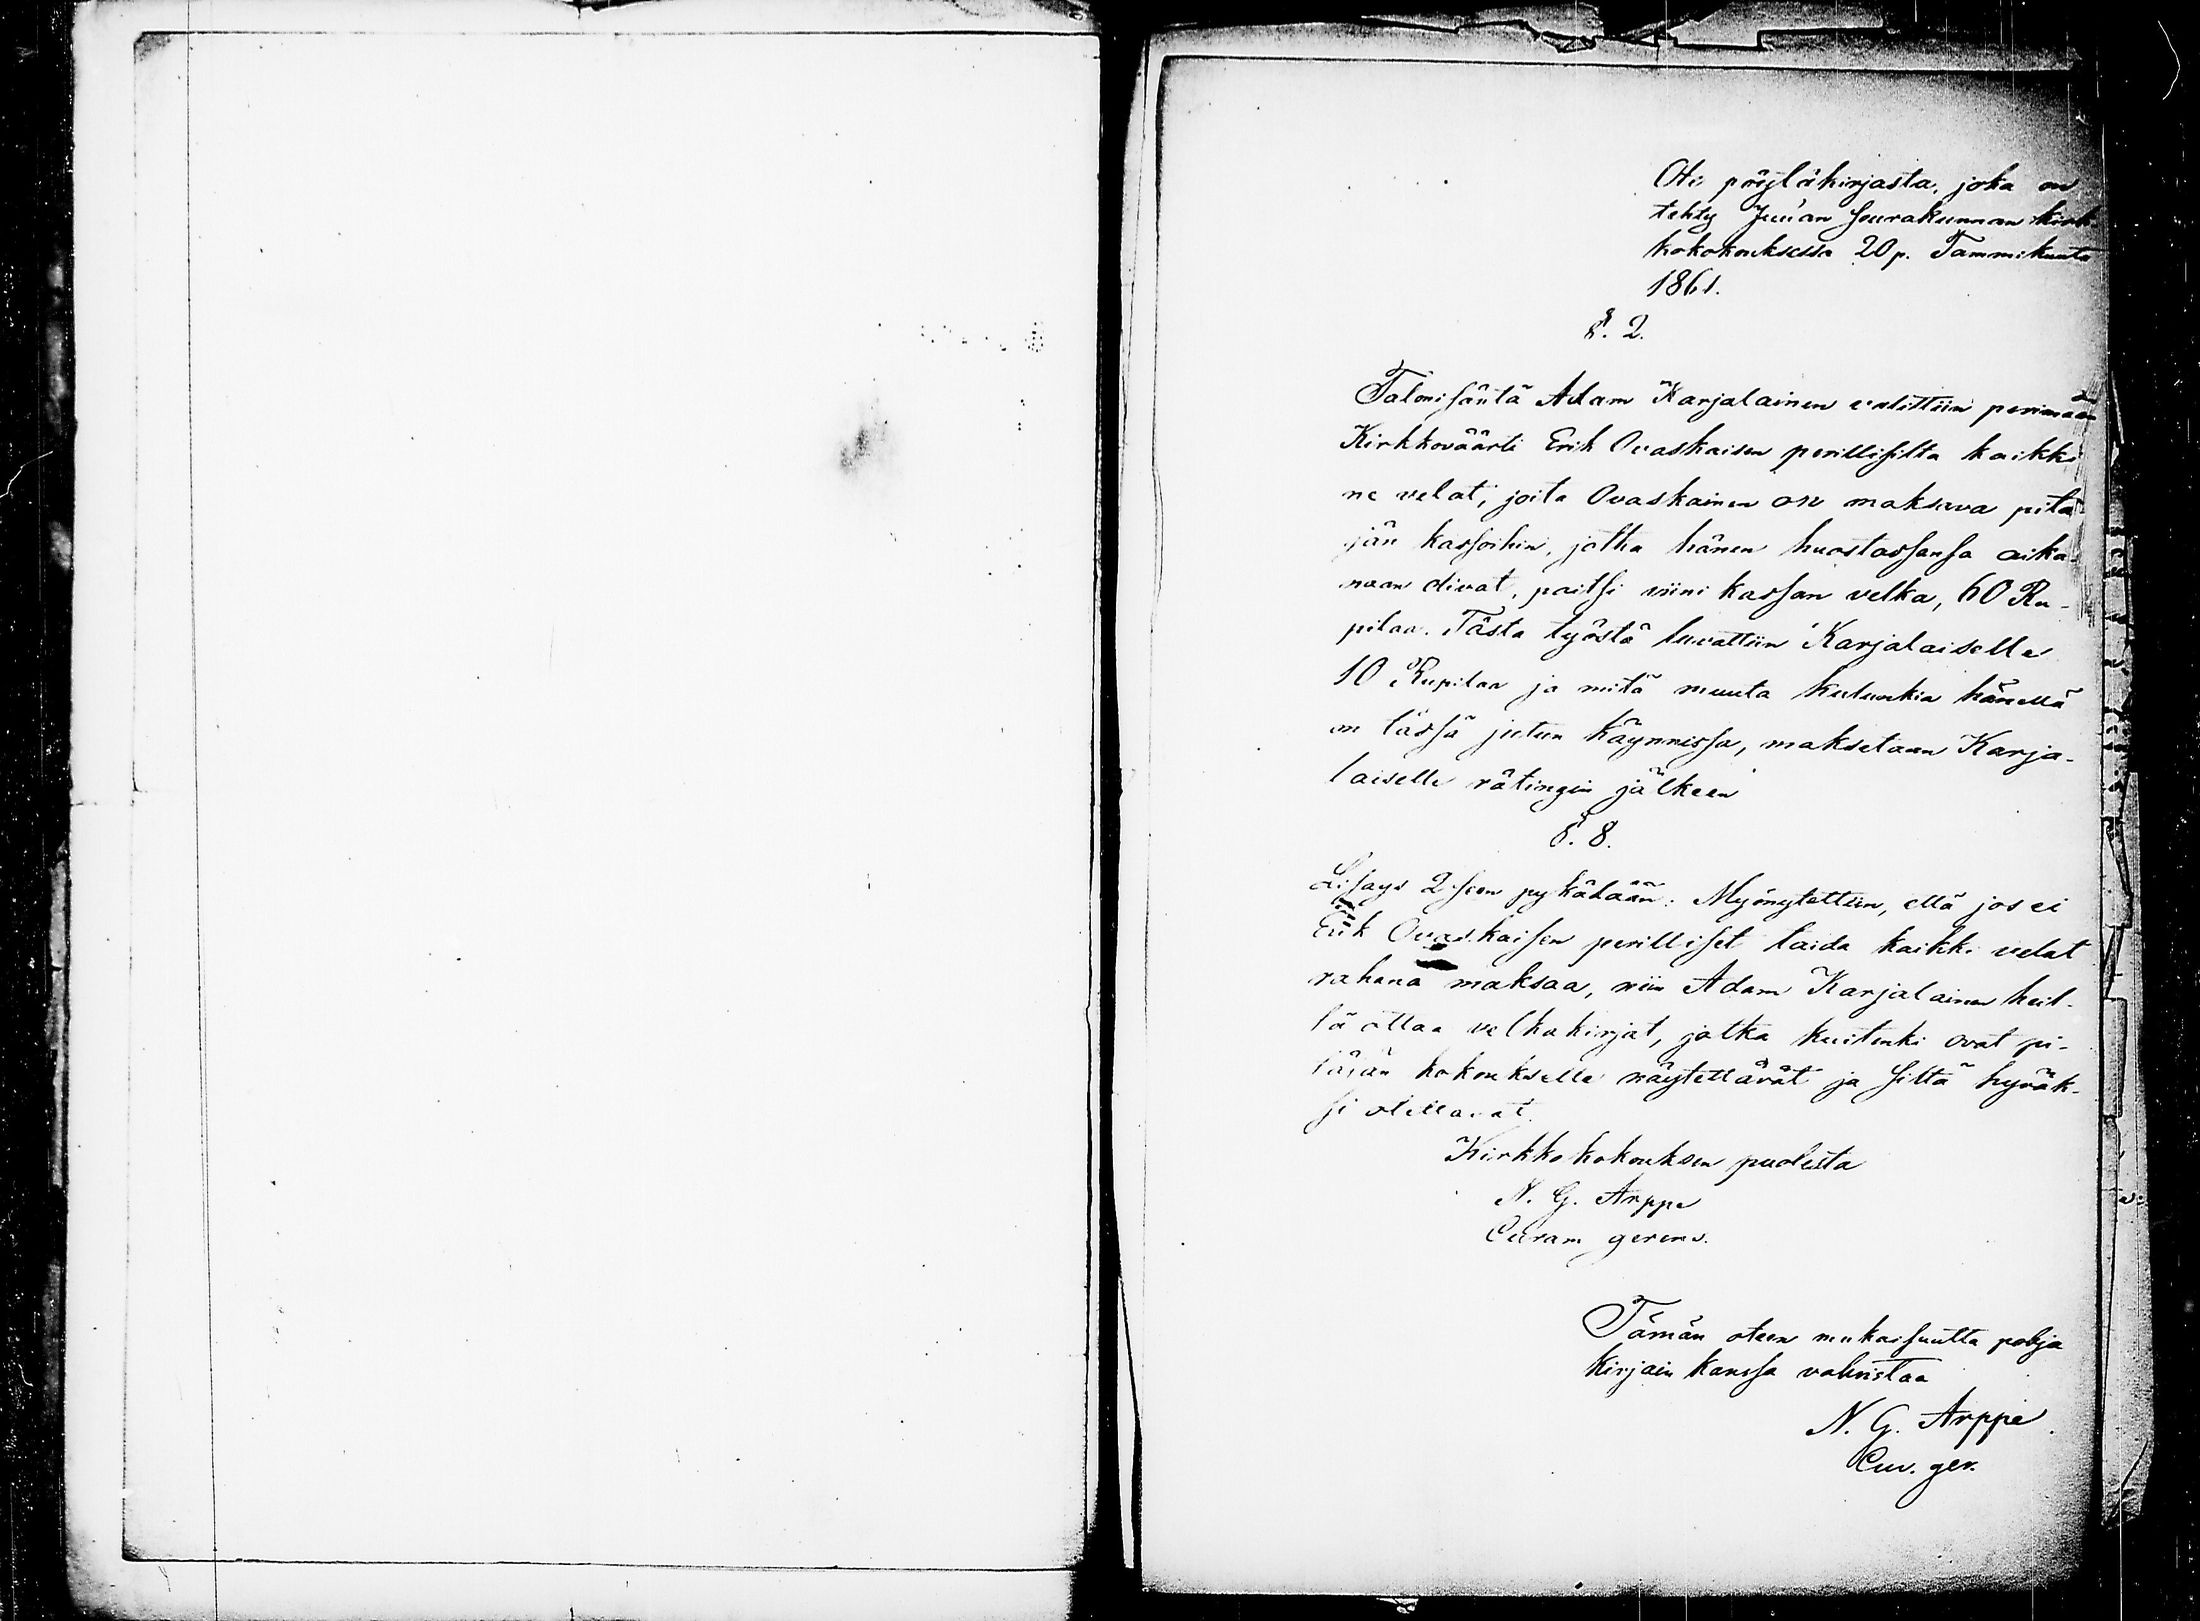 Ote pöytäkirjasta, joka on
tehty Juuan seurakunnan kirk
kokokouksessa 20 p. Tammikuuta
1861.
§. 2.
Talonisäntä Adam Karjalainen valittiin perimään
Kirkkoväärti Erik Ovaskaisen perillisiltä kaikki
ne velat, joita Ovaskainen on maksava pitä
jän kassoihin, jotka hänen huostassansa aika-
naan olivat, paitsi viini kassan velka, 60 Ru-
pilaa. Tästa työstä luvattiin Karjalaiselle
10 Rupilaa ja mitä muuta kulunkia hänellä
on tässä jutun käynnissa, maksetaan Karja-
laiselle rätingin jälkeen
§. 8.
Lisays 2 seen pykälään: Myönytettiin, että jos ei
Erik Ovaskaisen perilliset taida kaikki velat
rahana maksaa, niin Adam Karjalainen heil-
tä ottaa velkakirjat, jotka kuitenki ovat pi-
täjän kokoukselle näytettävät ja siltä hyväk-
si otettavat.
Kirkkokokouksen puolesta
N. G. Arppe
Curam gerens.
Tämän oteen mukaisuutta pohja
kirjain kanssa vahvistaa
N. G. Arppe.
Cur. ger.